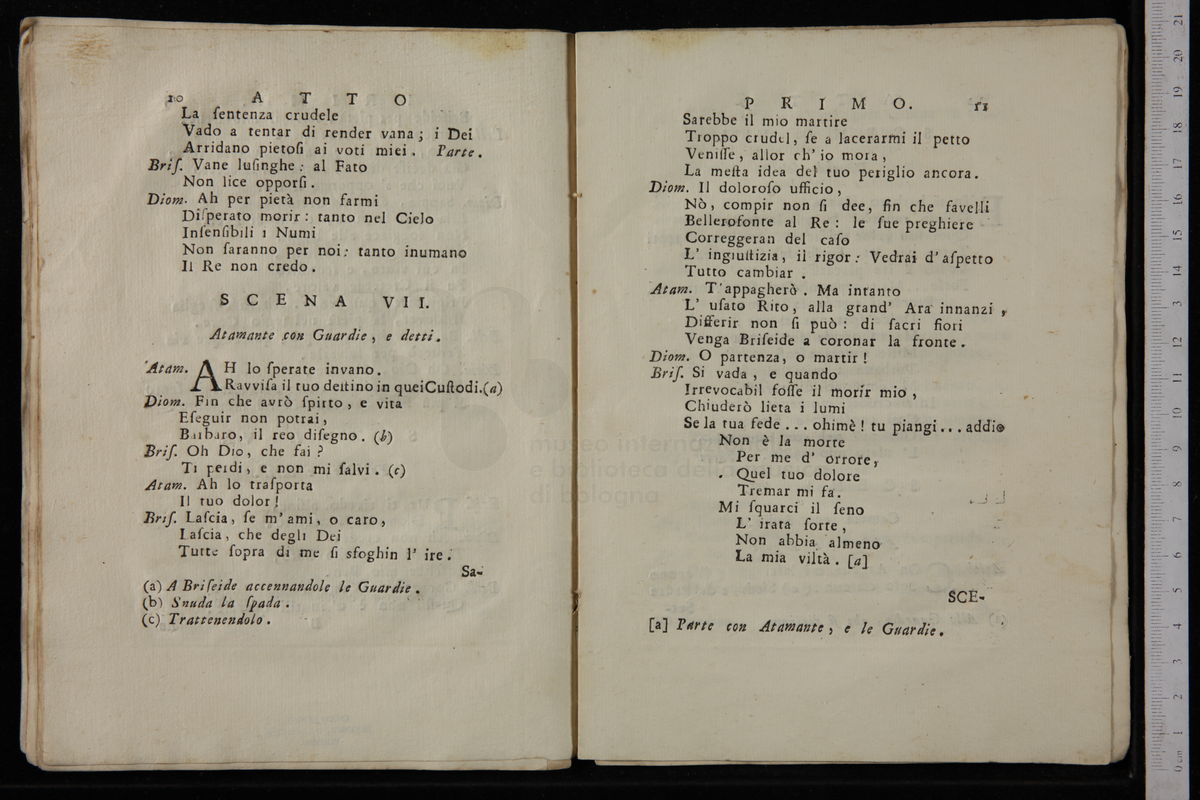 10 A T T O
La ſentenza crudele
Vado a tentar di render vana; i Dei
Arridano pietoſi ai voti miei. Parte.
Briſ. Vane luſinghe: al Fato
Non lice opporſi.
Diom. Ah per pietà non farmi
Diſperato morir: tanto nel Cielo
Inſenſibili i Numi
Non ſaranno per noi: tanto inumano
Il Re non credo.
S C E N A VII.
Atamante con Guardie, e detti.
Atam. AH lo ſperate invano.
Ravviſa il tuo deſtino in quei Cuſtodi.(a)
Diom. Fin che avrò ſpirto, e vita
Eſeguir non potrai,
Barbaro, il reo diſegno. (b)
Briſ. Oh Dio, che fai?
Ti perdi, e non mi ſalvi. (c)
Atam. Ah lo traſporta
Il tuo dolor!
Briſ. Laſcia, ſe m'ami, o caro,
Laſcia, che degli Dei
Tutte ſopra di me ſi sfoghin l' ire.
Sa-
(a) A Briſeide accennandole le Guardie.
(b) Snuda la ſpada.
(c) Trattenendolo.
P R I M O. 11
Sarebbe il mio martire
Troppo crudel, ſe a lacerarmi il petto
Veniſſe, allor ch' io mora,
La meſta idea del tuo periglio ancora.
Diom. Il doloroſo ufficio,
Nò, compir non ſi dee, fin che favelli
Bellerofonte al Re: le ſue preghiere
Correggeran del caſo
L' ingiuſtizia, il rigor: Vedrai d'aſpetto
Tutto cambiar.
Atam. T'appagherò. Ma intanto
L' uſato Rito, alla grand' Ara innanzi,
Differir non ſi può: di ſacri fiori
Venga Briſeide a coronar la fronte.
Diom. O partenza, o martir!
Briſ. Si vada, e quando
Irrevocabil foſſe il morir mio,
Chiuderò lieta i lumi
Se la tua fede... ohimè! tu piangi... addio
Non è la morte
Per me d' orrore,
Quel tuo dolore
Tremar mi fa.
Mi ſquarci il ſeno
L' irata ſorte,
Non abbia almeno
La mia viltà. [a]
SCE-
[a] Parte con Atamante, e le Guardie.
museo interna
e biblioteca del
di bologna
0 cm 1 2 3 4 5 6 7 8 9 10 11 12 13 14 15 16 17 18 19 20 21